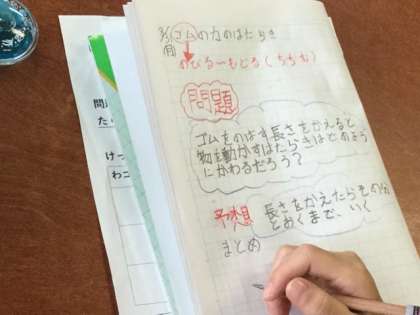 ゴムの力のはたらき
のびる→もどる(ちぢむ)
問題
ゴムをのばす長さをかえると
物を動かすはたらきはどのよう
にかわるだろう?
予想
長さをかえたらその分
とおくまで、いく
まとめ
問
た
けっ
わコ